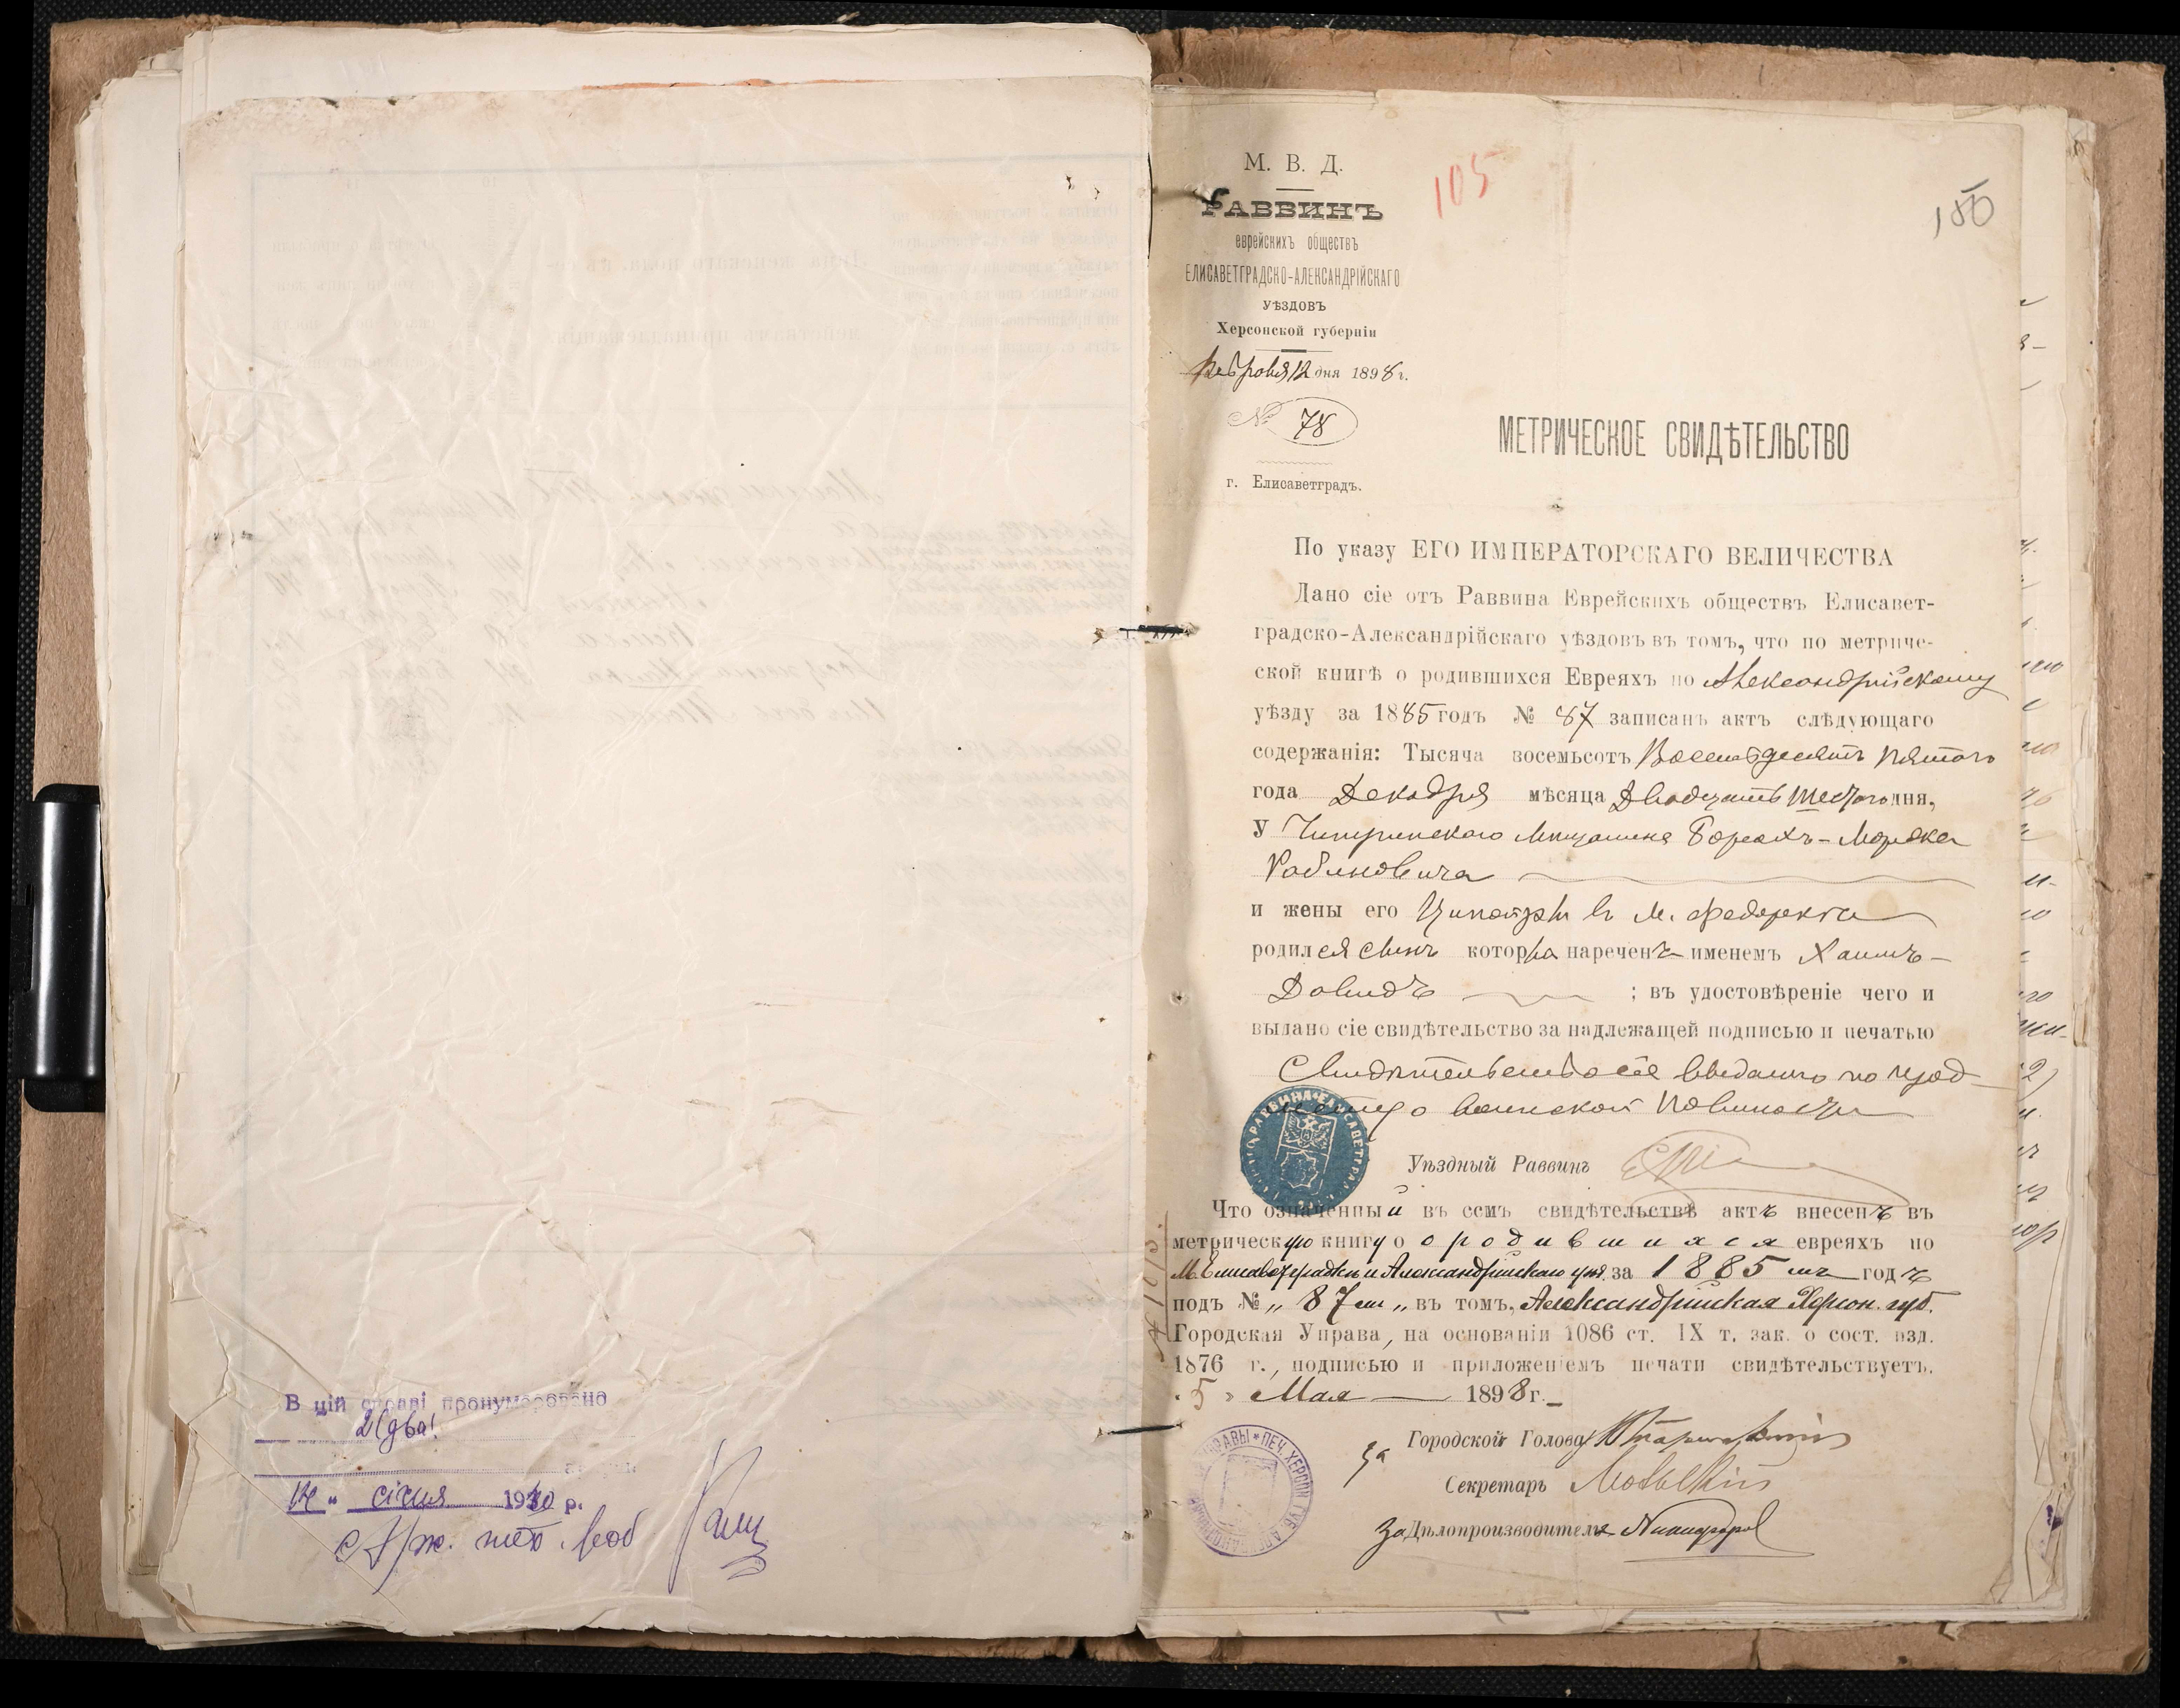 В цій справі пронумеровано
2 (два)
14 " січня 1940 р.
М. В. Д.
105
150
РАВВИНЪ
еврейскихъ обществъ
ЕЛИСАВЕТГРАДСКО-АЛЕКСАНДРІЙСКАГО
УѢЗДОВЪ
Херсонской губерніи
Февраля 12 дня 1898 г.
№ 78
г. Елисаветградъ.
МЕТРИЧЕСКОЕ СВИДѢТЕЛЬСТВО
По указу ЕГО ИМПЕРАТОРСКАГО ВЕЛИЧЕСТВА
Дано сіе отъ Раввина Еврейскихъ обществъ Елисавет-
градско-Александрійскаго уѣздовъ въ томъ, что по метриче-
ской книгѣ о родившихся Евреяхъ по Александрійскому
уѣзду за 1885 годъ № 87 записанъ актъ слѣдующаго
содержанія: Тысяча восемьсотъ Восемьдесятъ пятого
года Декабря мѣсяца Двадцать шестого дня,
У Чигиринскаго мѣщанина Борехъ-Мордка
Рабиновича
и жены его Ципойры в м. Федоровка
родился сынъ которы нареченъ именемъ Хаимъ-
Довидъ ; въ удостовѣреніе чего и
выдано сіе свидѣтельство за надлежащей подписью и печатью
Свидѣтельство сіе выдано по пред-
мету о воинской повинности
Уѣздный Раввинъ
Что означенный въ семъ свидѣтельствѣ актъ внесенъ въ
метрическую книгу о о родившихся евреяхъ по
Елисаветградск. и Александрійскаго у. за 1885 мъ годъ
подъ № „ 87 мъ „ въ томъ, Александрійская Херсон. губ.
Городская Управа, на основаніи 1086 ст. IX т. зак. о сост. изд.
1876 г., подписью и приложеніемъ печати свидѣтельствуетъ.
« 5 » Мая 1898 г.
за Городской Голова
Секретарь
За Дѣлопроизводителя